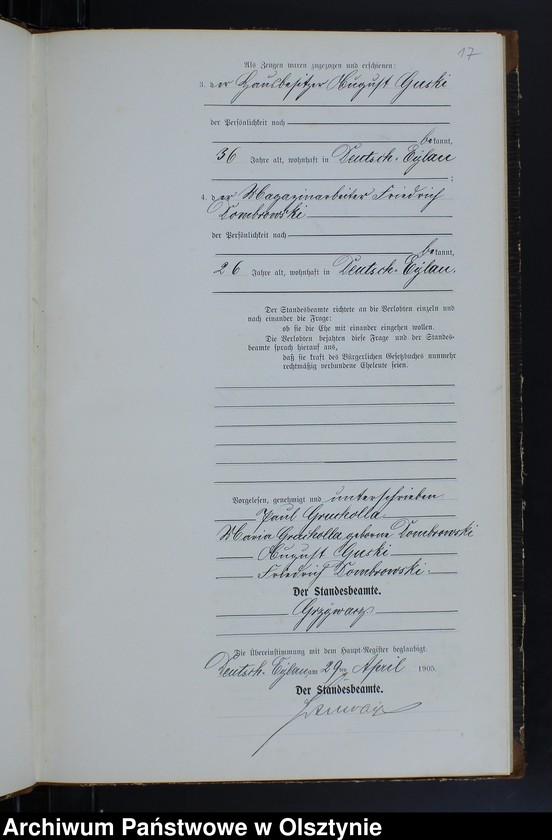 17
Als Zeugen waren zugezogen und erschienen:
3. der Hausbesitzer August Guski
der Persönlichkeit nach
bekannt,
36 Jahre alt, wohnhaft in Deutsch-Eylau
;
4. der Magazinarbeiter Friedrich
Dombrowski
der Persönlichkeit nach
bekannt,
26 Jahre alt, wohnhaft in Deutsch-Eylau.
Der Standesbeamte richtete an die Verlobten einzeln und
nach einander die Frage:
ob sie die Ehe mit einander eingehen wollen.
Die Verlobten bejahten diese Frage und der Standes-
beamte sprach hierauf aus,
daß sie kraft des Bürgerlichen Gesetzbuches nunmehr
rechtmäßig verbundene Eheleute seien.
Vorgelesen, genehmigt und unterschrieben
Paul
Maria geborne Dombrowski
August Guski
Friedrich Dombrowski.
Der Standesbeamte.
Die Übereinstimmung mit dem Haupt-Register beglaubigt.
Deutsch-Eylau am 29ten April 1905.
Der Standesbeamte.
Archiwum Państwowe w Olsztynie